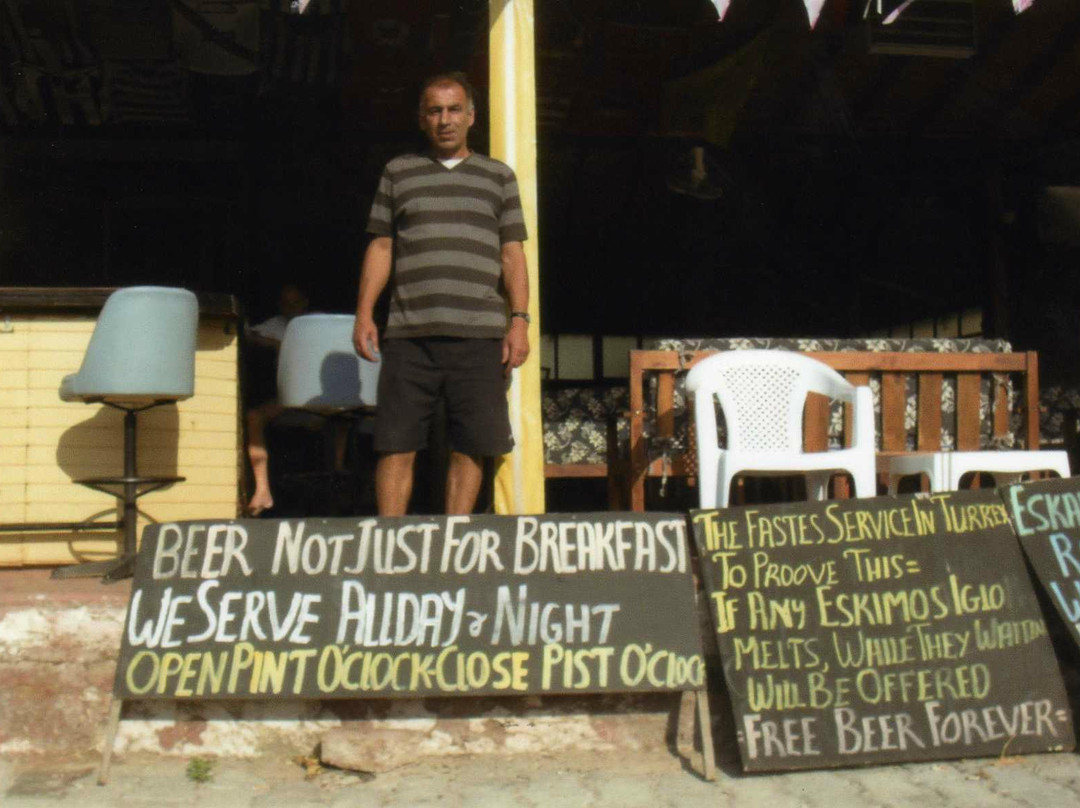 BEER NOT JUST FOR BREAKFAST
WE SERVE ALLDAY & NIGHT
OPEN PINT O'CLOCK-CLOSE PIST O'CLOC
THE FASTES SERVICE IN TURREY
TO PROOVE THIS=
IF ANY ESKIMOS IGLO
MELTS, WHILE THEY WAITIN
WILL BE OFFERED
=FREE BEER FOREVER=
ESKA
R
W